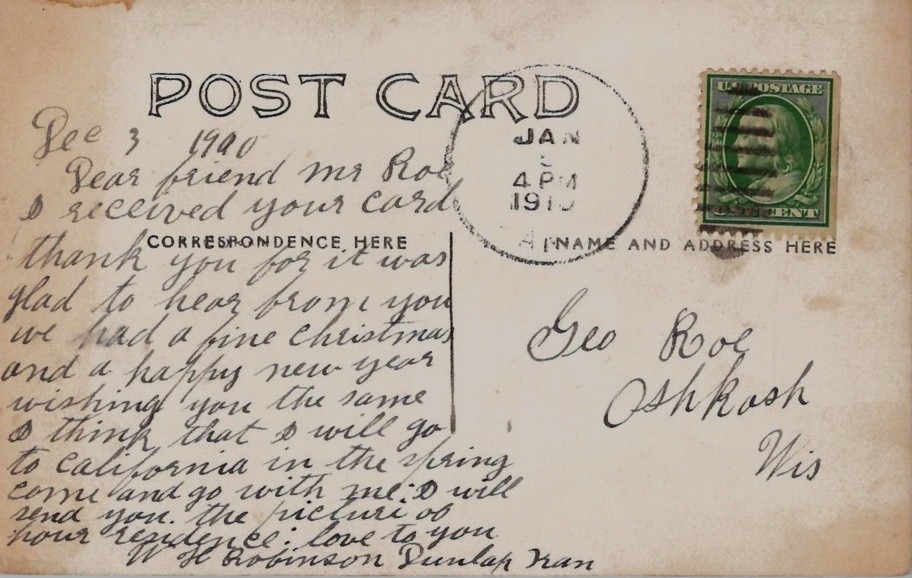 POST CARD
Dec 3 1910
Dear friend Mr Roe
I received your card
CORRESPONDENCE HERE
thank you for it was
glad to hear from you
we had a fine christmas
and a happy new year
wishing you the same
I think that I will go
to California in the spring
come and go with me. I will
send you. the picture of
hour residence. love to you
W H Robinson Dunlap Kan
JAN
4 PM
1910
U.S. POSTAGE
CENT
NAME AND ADDRESS HERE
Geo Roe
Oshkosh
Wis